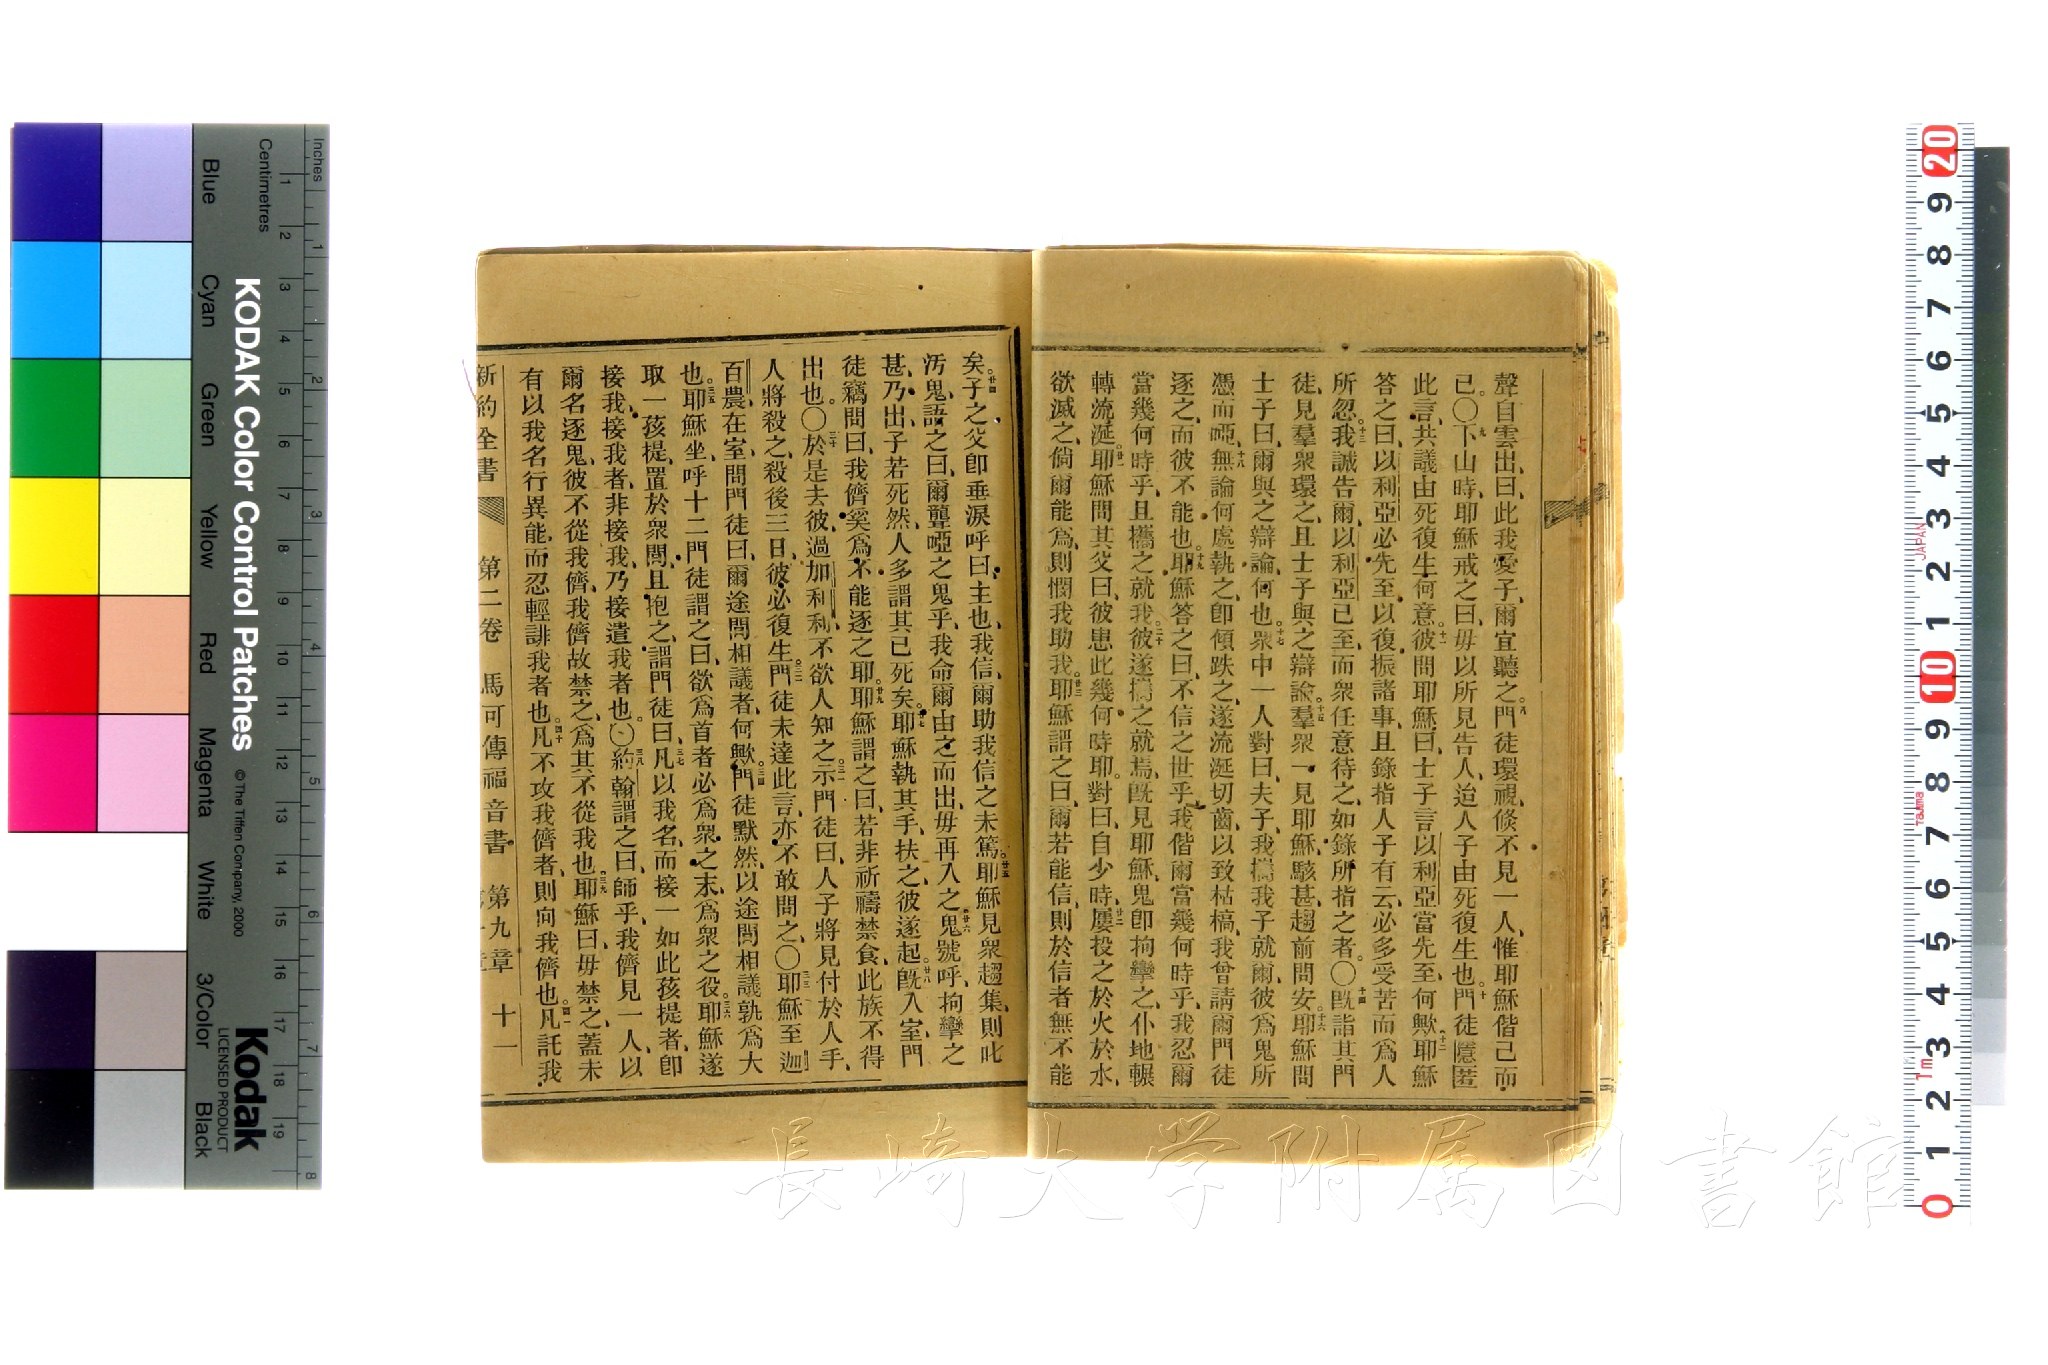 聲自雲出曰、此我愛子、爾宜聽之、八門徒環視、倏不見一人、惟耶穌偕己而
已。〇九下山時、耶穌戒之曰、毋以所見告人、迨人子由死復生也。十門徒隱匿
此言、共議由死復生何意。十一彼問耶穌曰、士子言以利亞當先至、何歟、十二耶穌
答之曰、以利亞必先至、以復振諸事、且錄指人子有云、必多受苦而爲人
所忽。十三我誠告爾、以利亞已至、而衆任意待之、如錄所指之者。〇十四旣詣其門
徒、見羣衆環之、且士子與之辯論。十五羣衆一見耶穌、駭甚、趨前問安。十六耶穌問
士子曰、爾與之辯論何也、十七衆中一人對曰、夫子、我攜我子就爾、彼爲鬼所
憑而啞、十八無論何處執之、卽傾跌之、遂流涎切齒、以致枯槁、我曾請爾門徒
逐之、而彼不能也。十九耶穌答之曰、不信之世乎、我偕爾當幾何時乎、我忍爾
當幾何時乎、且攜之就我、二十彼遂攜之就焉、旣見耶穌、鬼卽拘攣之、仆地輾
轉流涎、廿一耶穌問其父曰、彼患此幾何時耶。對曰、自少時、廿二屢投之於火於水、
欲滅之、倘爾能爲、則憫我助我、廿三耶穌謂之曰、爾若能信、則於信者無不能
矣。廿四子之父卽垂淚呼曰、主也、我信、爾助我信之未篤。廿五耶穌見衆趨集、則叱
汚鬼、語之曰、爾聾啞之鬼乎、我命爾由之而出、毋再入之、廿六鬼號呼、拘攣之
甚、乃出、子若死然、人多謂其已死矣。廿七耶穌執其手、扶之、彼遂起。廿八旣入室、門
徒竊問曰、我儕奚爲不能逐之耶、廿九耶穌謂之曰、若非祈禱禁食、此族不得
出也。〇三十於是去彼、過加利利、不欲人知之、三一示門徒曰、人子將見付於人手、
人將殺之、殺後三日、彼必復生、三二門徒未達此言、亦不敢問之、〇三三耶穌至迦
百農、在室、問門徒曰、爾途間相議者何歟、三四門徒默然、以途間相議孰爲大
也。三五耶穌坐、呼十二門徒謂之曰、欲爲首者、必爲衆之末、爲衆之役、三六耶穌遂
取一孩提、置於衆間、且抱之、謂門徒曰、三七凡以我名、而接一如此孩提者、卽
接我、接我者、非接我、乃接遣我者也、〇三八約翰謂之曰、師乎、我儕見一人以
爾名逐鬼、彼不從我儕、我儕故禁之、爲其不從我也、三九耶穌曰、毋禁之、蓋未
有以我名行異能、而忍輕誹我者也、四十凡不攻我儕者、則向我儕也。四一凡託我
新約全書 第二卷 馬可傳福音書 第九章 十一
Inches
Centimetres
KODAK Color Control Patches
© The Tiffen Company, 2000
Blue Cyan Green Yellow Red Magenta White 3/Color Black
Kodak
LICENSED PRODUCT
長崎大学附属図書館
JAPAN
Tajima